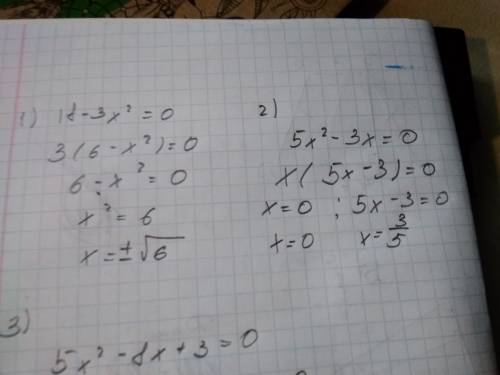 1) 18-3x²=0
3(6-x²)=0
6-x²=0
x²=6
x=±√6
2)
5x²-3x=0
x(5x-3)=0
x=0 ; 5x-3=0
x=0 x=3/5
3)
5x²-8x+3=0